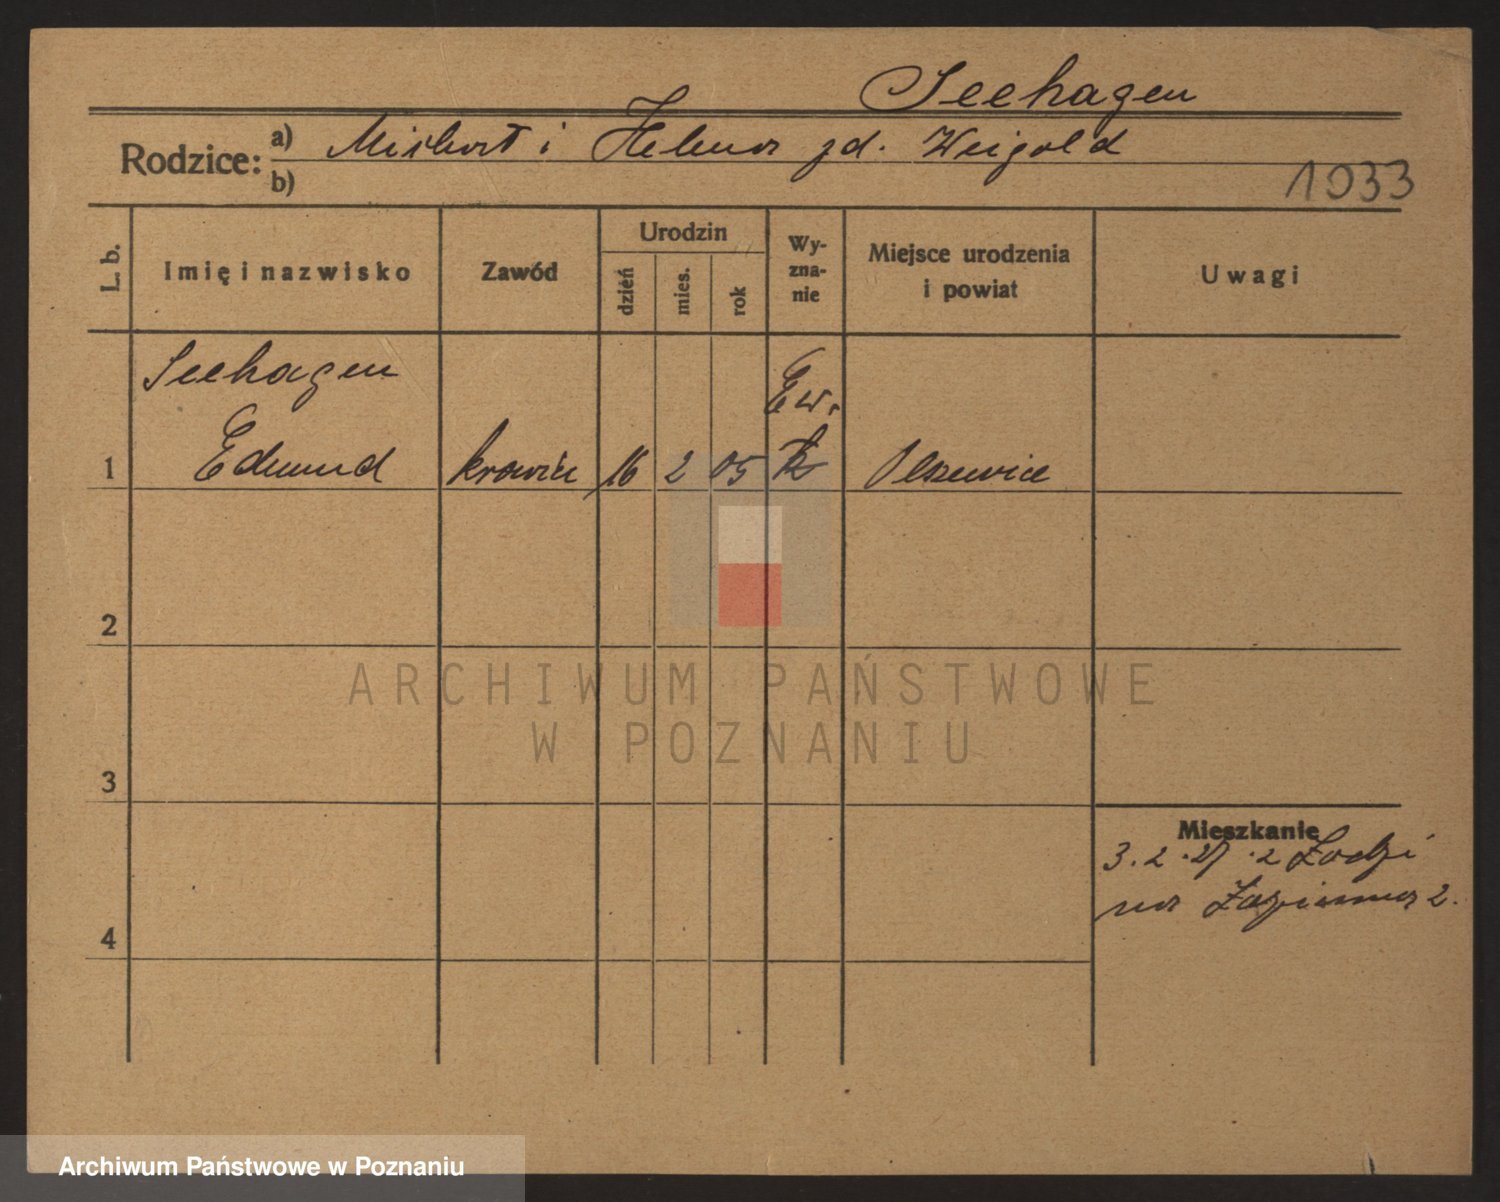 Seehagen
Rodzice: a) Michał i Helena zd. Weigold
b)
1033
L. b.
Imię i nazwisko
Zawód
Urodzin
dzień
mies.
rok
Wy-
zna-
nie
Miejsce urodzenia
i powiat
Uwagi
Seehagen
Ew.
1 Edmund krawiec 16 2 05
2
3
4
Mieszkanie
3.2.27 z Łodzi
na
2.
ARCHIWUM PAŃSTWOWE
W POZNANIU
Archiwum Państwowe w Poznaniu